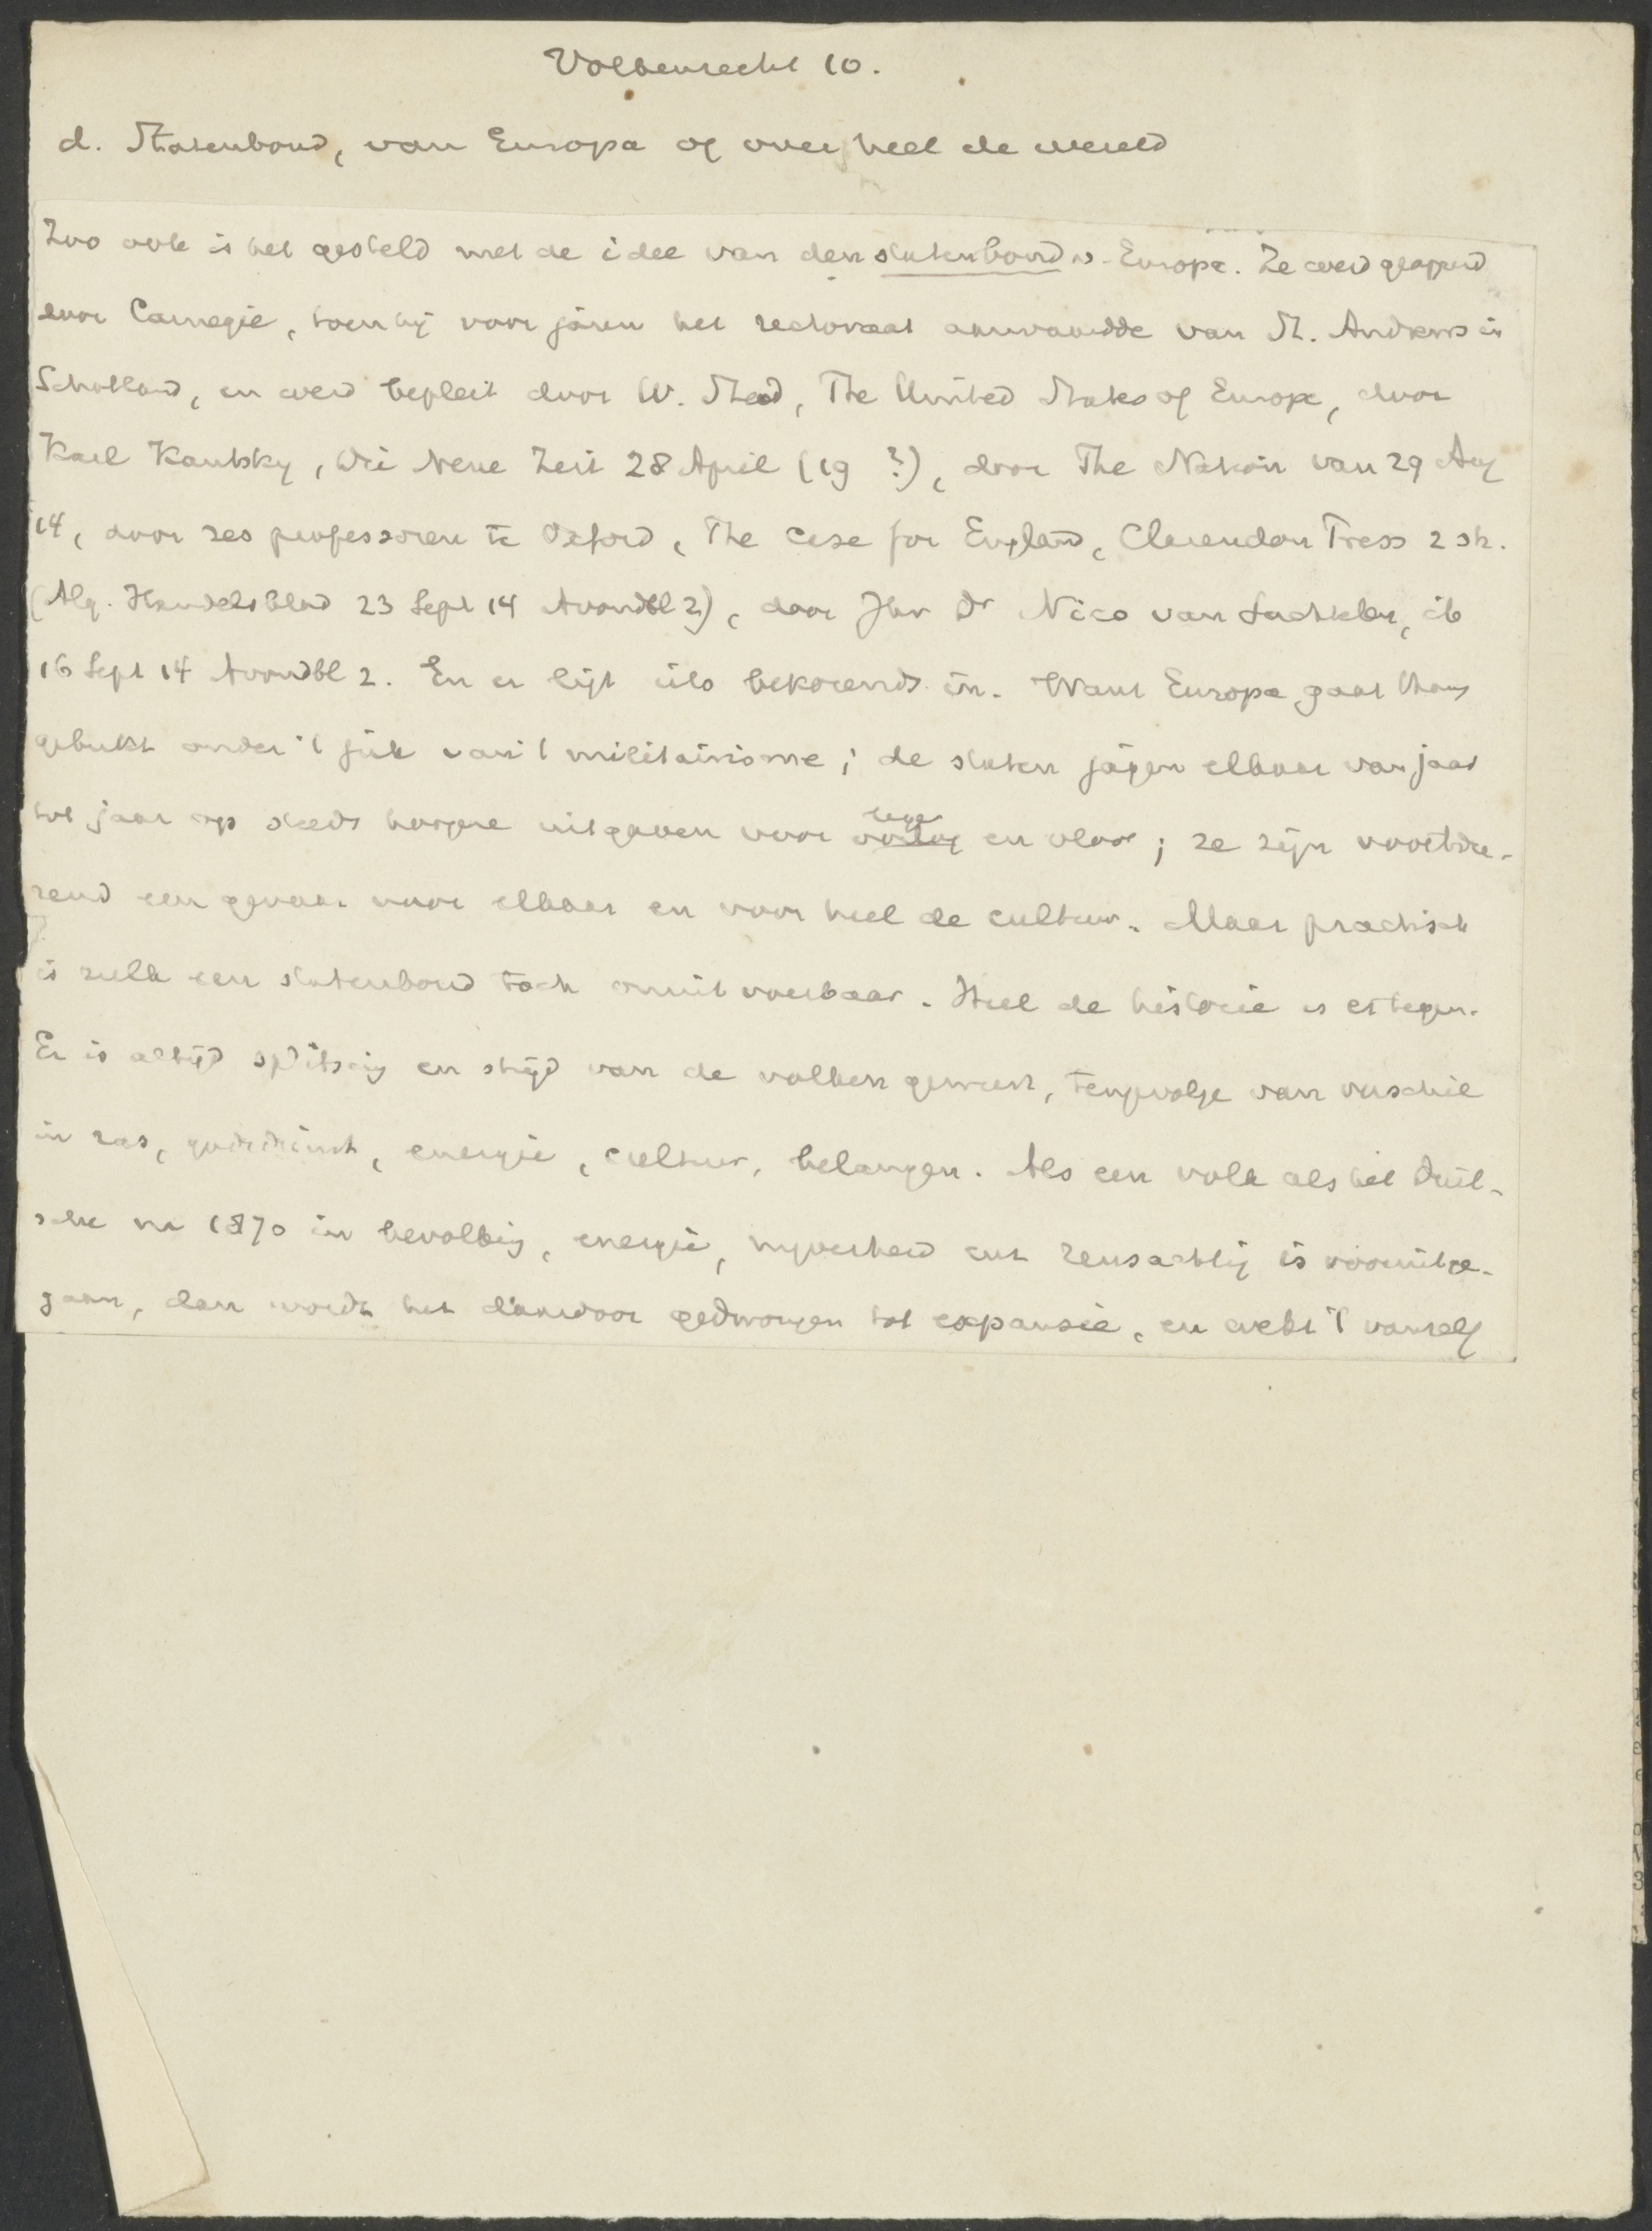 Volkenrecht 10.
d. Statenbond, van Europa of over heel de wereld
Zoo ook is het gesteld met de idee van den statenbond v. Europa. Ze werd geopperd
door Carnegie, toen hij voor jaren het rectoraat aanvaardde van St. Andrews in
Schotland, en werd bepleit door W. Stead, The United States of Europe, door
Karl Kautsky, Die Neue Zeit 28 April (19 ?), door The Nation van 29 Aug
14, door zes professoren te Oxford, The Case for England, Clarendon Press 2 sh.
(Alg. Handelsblad 23 Sept 14 Avondbl 2), door Jhr Dr Nico van Suchtelen, ib
16 Sept 14 Avondbl 2. En er ligt iets bekoorends in. Want Europa gaat thans
gebukt onder 't juk van 't militairisme; de staten jagen elkaar van jaar
tot jaar op steeds hoogere uitgaven voor oorlog leger en vloot; ze zijn voortdu-
rend een gevaar voor elkaar en voor heel de cultuur. Maar practisch
is zulk een statenbond toch onuitvoerbaar. Heel de historie is er tegen.
Er is altijd splitsing en strijd van de volken geweest, tengevolge van verschil
in ras, godsdienst, energie, cultuur, belangen. Als een volk als het Duit-
sche na 1870 in bevolking, energie, nijverheid enz reusachtig is vooruitge-
gaan, dan wordt het daardoor gedwongen tot expansie, en wekt 't vanzelf